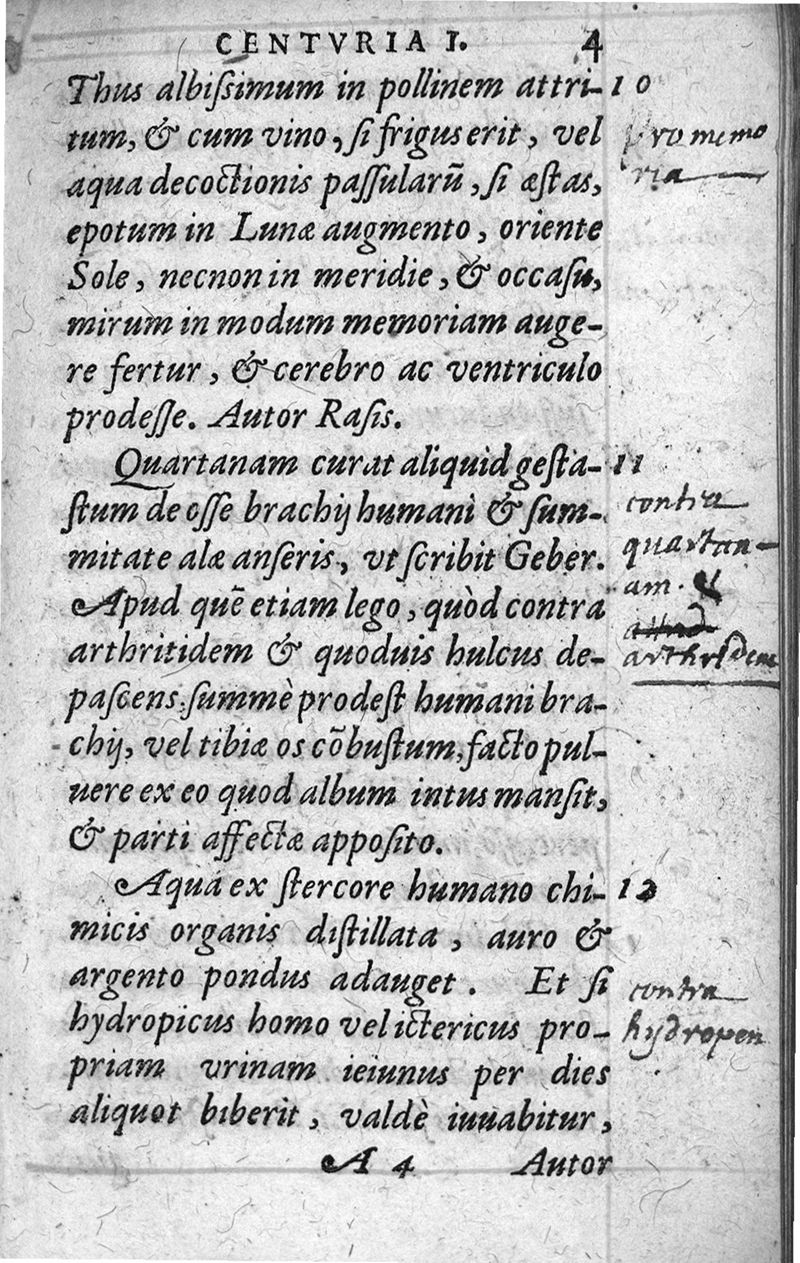 CENTVRIA I. 4
Thus albiſsimum in pollinem attri- 10
tum, & cum vino, ſi frigus erit, vel
pro memo
aqua decoctionis paſſularū, ſi æſtas,
ria
epotum in Lunæ augmento, oriente
Sole, necnon in meridie, & occaſu,
mirum in modum memoriam auge-
re fertur, & cerebro ac ventriculo
prodeſſe. Autor Raſis.
Quartanam curat aliquid geſta- 11
ſtum de oſſe brachij humani & ſum-
contra
mitate alæ anſeris, vt ſcribit Geber.
quartan-
Apud quē etiam lego, quòd contra
am. &
arthritidem & quoduis hulcus de-
arthridem
paſcens, ſummè prodeſt humani bra-
chij, vel tibiæ os cōbuſtum, facto pul-
uere ex eo quod album intus manſit,
& parti affectæ appoſito.
Aqua ex ſtercore humano chi- 12
micis organis diſtillata, auro &
argento pondus adauget. Et ſi
contra
hydropicus homo vel ictericus pro-
hydropen
priam vrinam ieiunus per dies
aliquot biberit, valdè iuuabitur,
A 4 Autor